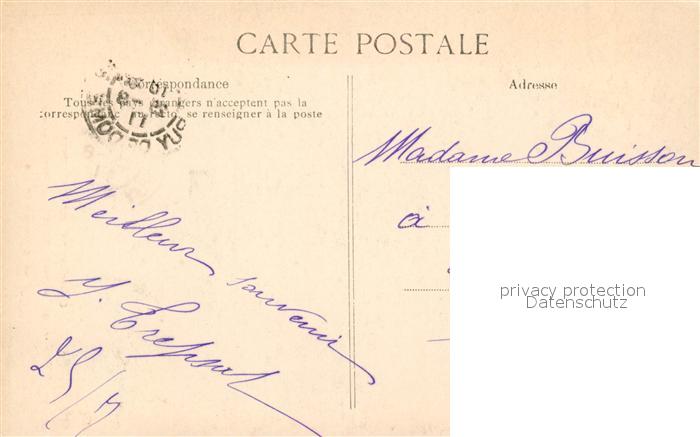 CARTE POSTALE
Correspondance
Tous les pays étrangers n'acceptent pas la
correspondance au recto, se renseigner à la poste
Adresse
Madame Buisson
à
Meilleur souvenir
25/7
privacy protection
Datenschutz